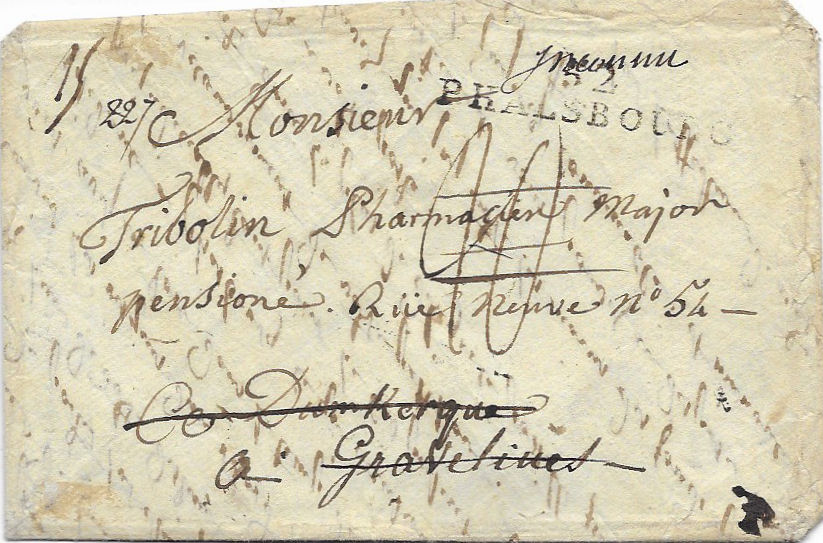 15
inconnu
227
52
PHALSBOURG
Monsieur
Tribolin Pharmacien Major
pensioné. Rue Neuve n° 54 -
Dunkerque
a Gravelines